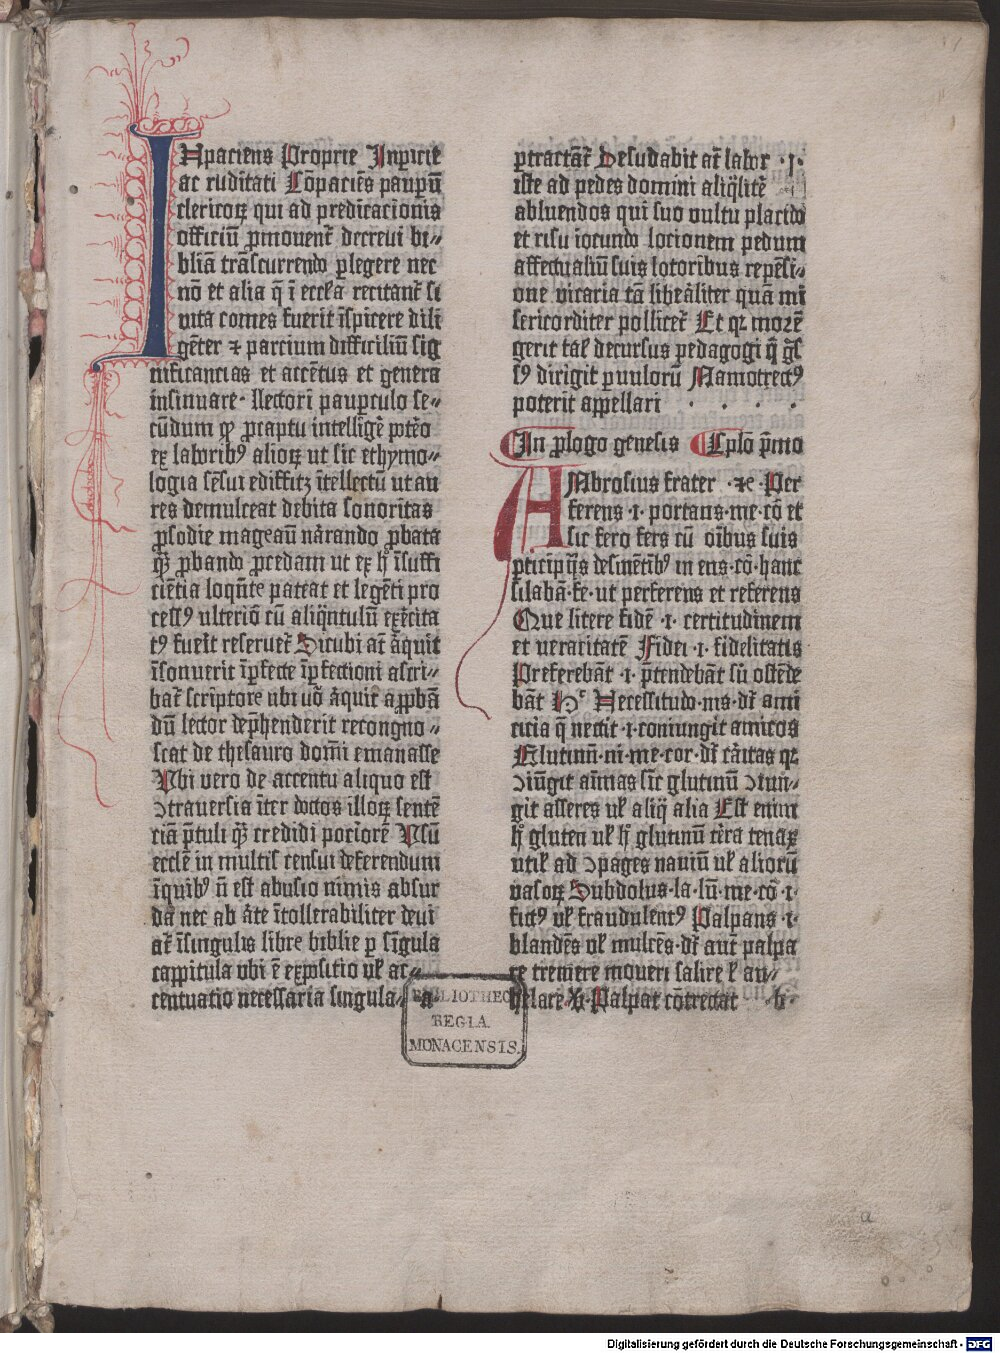 INpaciens Proprie Inpicie
ac ruditati Cõpaciẽs paupeꝝ
clericoꝝ qui ad predicacionis
officiũ ꝓmouent᷑ decreui bi-
bliã trãscurrendo ꝑlegere nec
nõ et alia q̃ ĩ eccl̃ia recitant᷑ si
vita comes fuerit ĩspicere dili
gẽter ⁊ parcium difficiliũ sig
nificancias et accẽtus et genera
insinuare· lectori pauꝑculo se-
cũdum ꝙ ꝓcaptu intelligẽ põtero
ex laboribꝰ alioꝝ ut sic ethymo-
logia sẽsui ediffitz ĩtellectũ ut au
res demulceat debita sonoritas
ꝓsodie mageaũ nãrando ꝓbata
q̃ ꝓbando ꝓcedam ut ex h̊ ĩsuffi
ciẽtia loqñte pateat et legẽti pro
cessꝰ ulterió cũ aliq̃ntulũ exẽcita
tꝰ fue᷑it reseruet᷑ Sicubi at᷑ ãquit
ĩsonuerit ĩꝑfecte ĩꝑfectioni ascri-
bat᷑ scriptore ubi uo᷑ ãquit aꝓbã
dũ lector dep̃henderit recongno-
scat de thesauro dom̃i emanasse
Ubi vero de accentu aliquo est
ↄtrauersia ĩter doctos illoꝝ sentẽ
ciã p̃tuli q᷑ credidi pociorẽ Usũ
eccl̃e in multis censui deferendum
ĩquibꝰ ñ est abusio nimis absur
da nec ab ãte ĩtollerabiliter deui
at᷑ ĩsingulis libre biblie ꝑ sĩgula
cappitula ubi ẽ exꝑositio ul̛ ac-
centuatio necessaria singula- a
ꝑtractat᷑ Desudabit at᷑ labor ·i·
iste ad pedes domini aliq̃litẽ
abluendos qui suo vultu placido
et risu iocundo locionem pedum
affectualiũ suis lotoribus repẽsi-
one vicaria tã libeãliter quã mi
sericorditer pollicet᷑ Et qꝛ mozẽ
gerit tal̛ decursus pedagogi q̃ g̃s
sꝰ dirigit ꝑuuloꝝ Mamotrectꝰ
poterit appellari · · · ·
In ꝓlogo genesis Cplo p̃mo
AMbrosius frater ·⁊c· Per
ferens ·i· portans·me·cõ et
sic fero fers cũ oĩbus suis
ꝑticipijs desinẽtibꝰ in ens·cõ·hanc
silabã·fe· ut perferens et referens
Que litere fidẽ ·i· certitudinem
et veraritatẽ Fidei ·i· fidelitatis
Preferebãt ·i· p̃tendebãt sũ ostẽde
bãt Hᵉ Necessitudo·nis·dr᷑ ami
cicia q̃ nectit ·i· coniungit amicos
Glutinũ·ni·me·cor·dr᷑ cãritas qꝛ
ↄiũgit añimas sic̃ glutinũ ↄiun-
git asseres ul̛ aliq̃ alia Est enim
h̊ gluten ul̛ h̊ glutinũ tẽra tenax
util̛ ad ↄpages nauiũ ul̛ alioꝝ
uasoꝝ Subdolus·la·lũ·me·cõ·i·
fictꝰ ul̛ fraudulentꝰ Palpans·i·
blandẽs ul̛ mulcẽs·dr᷑ aut᷑ palpa
re tremere moueri salire ł an-
helare Palpat cõtrectat b·
BIBLIOTHECA
REGIA
MONACENSIS.
a
Digitalisierung gefördert durch die Deutsche Forschungsgemeinschaft - DFG